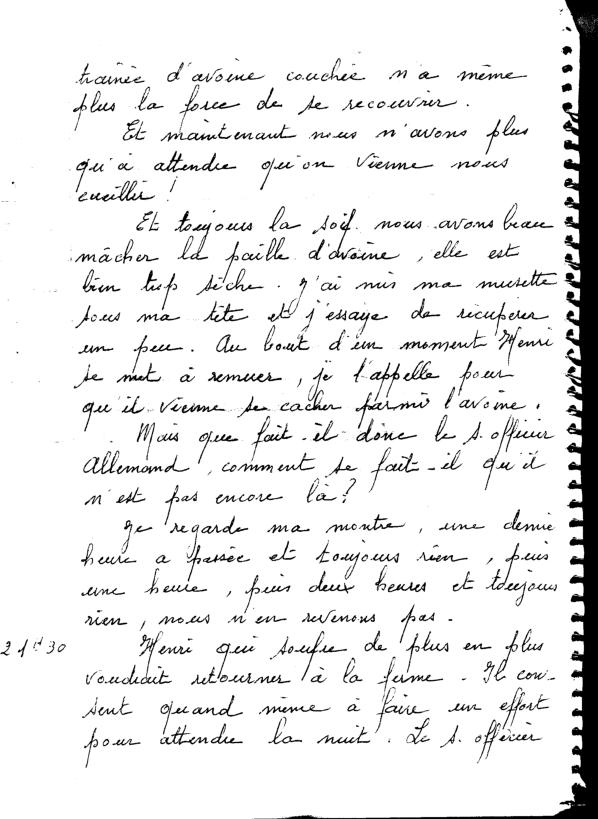 trainée d'avoine couchée n'a même
plus la force de se recouvrir.
Et maintenant nous n'avons plus
qu'à attendre qu'on vienne nous
cueillir !
Et toujours la soif. nous avons beau
mâcher la paille d'avoine, elle est
bien trop sèche. J'ai mis ma musette
sous ma tête et j'essaye de récupérer
un peu. Au bout d'un moment Henri
se met à remuer, je l'appelle pour
qu'il vienne se cacher parmi l'avoine.
Mais que fait-il donc le s. officier
Allemand, comment se fait-il qu'il
n'est pas encore là ?
Je regarde ma montre, une demie
heure a passée et toujours rien, puis
une heure, puis deux heures et toujours
rien, nous n'en revenons pas.
21h30 Henri qui soufre de plus en plus
voudrait retourner à la ferme. Il con-
sent quand même à faire un effort
pour attendre la nuit. Le s. officier